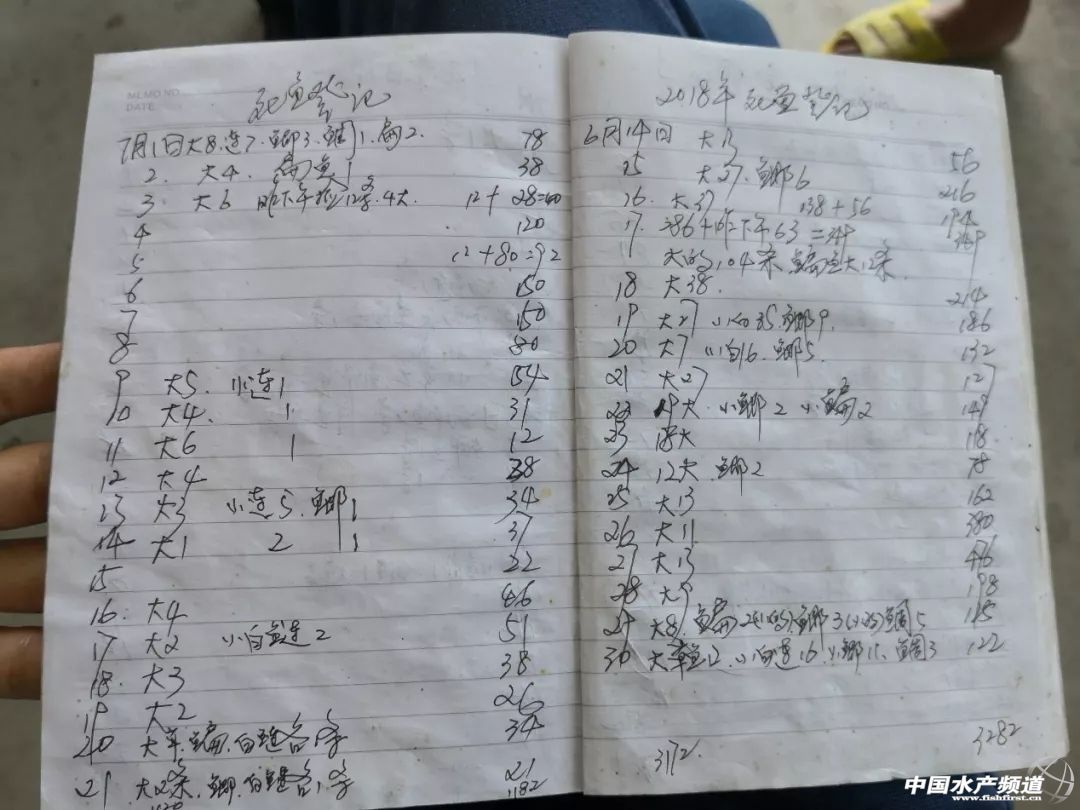 MEMO NO.
DATE
死鱼登记
7月1日大8.连7.鲫3.鲴1.扁2. 78
2. 大4. 扁鱼1 38
3. 大6 昨下午捡12条.4大 12+28=40
4 120
5 12+80=92
6 150
7 150
8 80
9 大5. 小连1 54
10 大4. 1 31
11 大6 1 12
12 大4 38
13 大3 小连5.鲫1 34
14 大1 2 1 37
15 22
16. 大4 46
17 大2 小白鲢2 51
18. 大3 38
19 大2 26
20 大草.鳊.白鲢各1条 34
21 大2条.鲫.白鲢各1条 21
1182
2018年死鱼登记
6月14日 大13 56
15 大27.鲫6 216
16. 大37 138+56 194
17. 286+昨下午63=349 349
大的104条.鳊鱼大12条.
18 大38. 214
19 大27 小白35.鲫9. 186
20 大7 小白16.鲫5. 132
21 大27 127
22 19大.小鲫2 小鳊2 149
23 18大 118
24 12大.鲫2 78
25 大13 162
26 大11 380
27 大13 476
28 大9 198
29 大8.鳊2(小的).鲫3(小的)鲴5 125
30 大草鱼12.小白连16.小鲫11.鲴3 122
3172. 3282
中国水产频道
www.fishfirst.cn